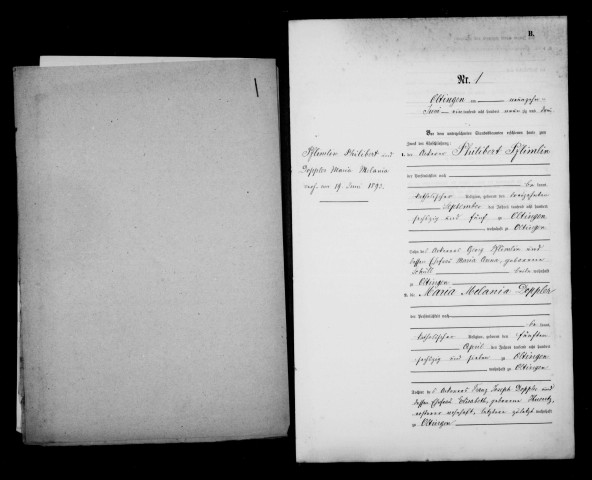 B.
Nr. 1
Oltingen am neunzehn
Juni eintausend acht hundert neunzig und drei
Vor dem unterzeichneten Standesbeamten erschienen heute zum
Zweck der Eheschließung:
1. der Ackerer Philibert Pflimlin
Pflimlin Philibert und
Doppler Maria Melania
vom 19. Juni 1893.
der Persönlichkeit nach
kannt,
katholischer Religion, geboren den dreizehnten
September des Jahres tausend acht hundert
sechszig und fünf zu Oltingen
wohnhaft zu Oltingen
Sohn des Ackerers Georg Pflimlin und
dessen Ehefrau Maria Anna, geborenen
beide wohnhaft
zu Oltingen
2. die Maria Melania Doppler
der Persönlichkeit nach
kannt,
katholischer Religion, geboren den fünften
April des Jahres tausend acht hundert
sechszig und sieben zu Oltingen
wohnhaft zu Oltingen
Tochter des Ackerers Franz Joseph Doppler und
dessen Ehefrau Elisabeth, geborenen
letztere zuletzt wohnhaft
zu Oltingen